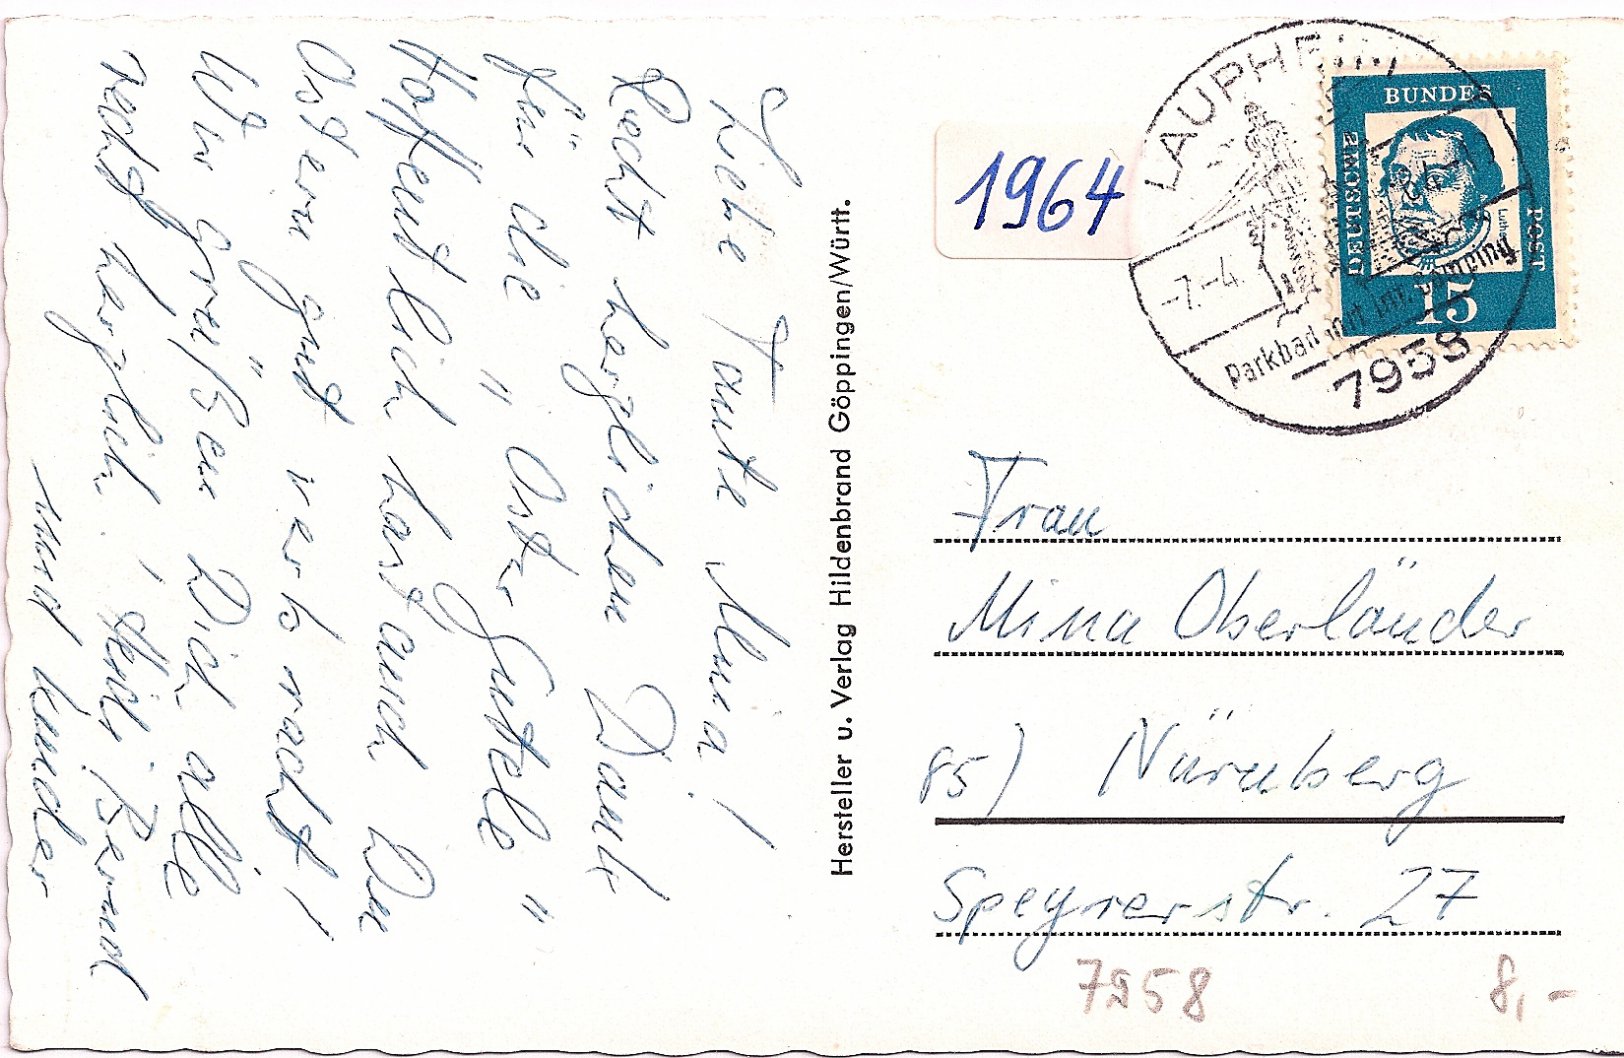 Liebe Tante Mina!
Recht herzlichen Dank
für die "Oster Gutele"
Hoffentlich hast auch Du
Ostern gut verbracht!
Wir grüßen Dich alle
recht herzlich, Heidi, Bernd
und Kinder
Hersteller u. Verlag Hildenbrand Göppingen/Württ.
1964
LAUPHEIM
-7.-4.
Parkbad mit Int. Camping
7958
BUNDES
POST
DEUTSCHE
Luther
15
Frau
Mina Oberländer
85) Nürnberg
Speyrerstr. 27
7958
8,-